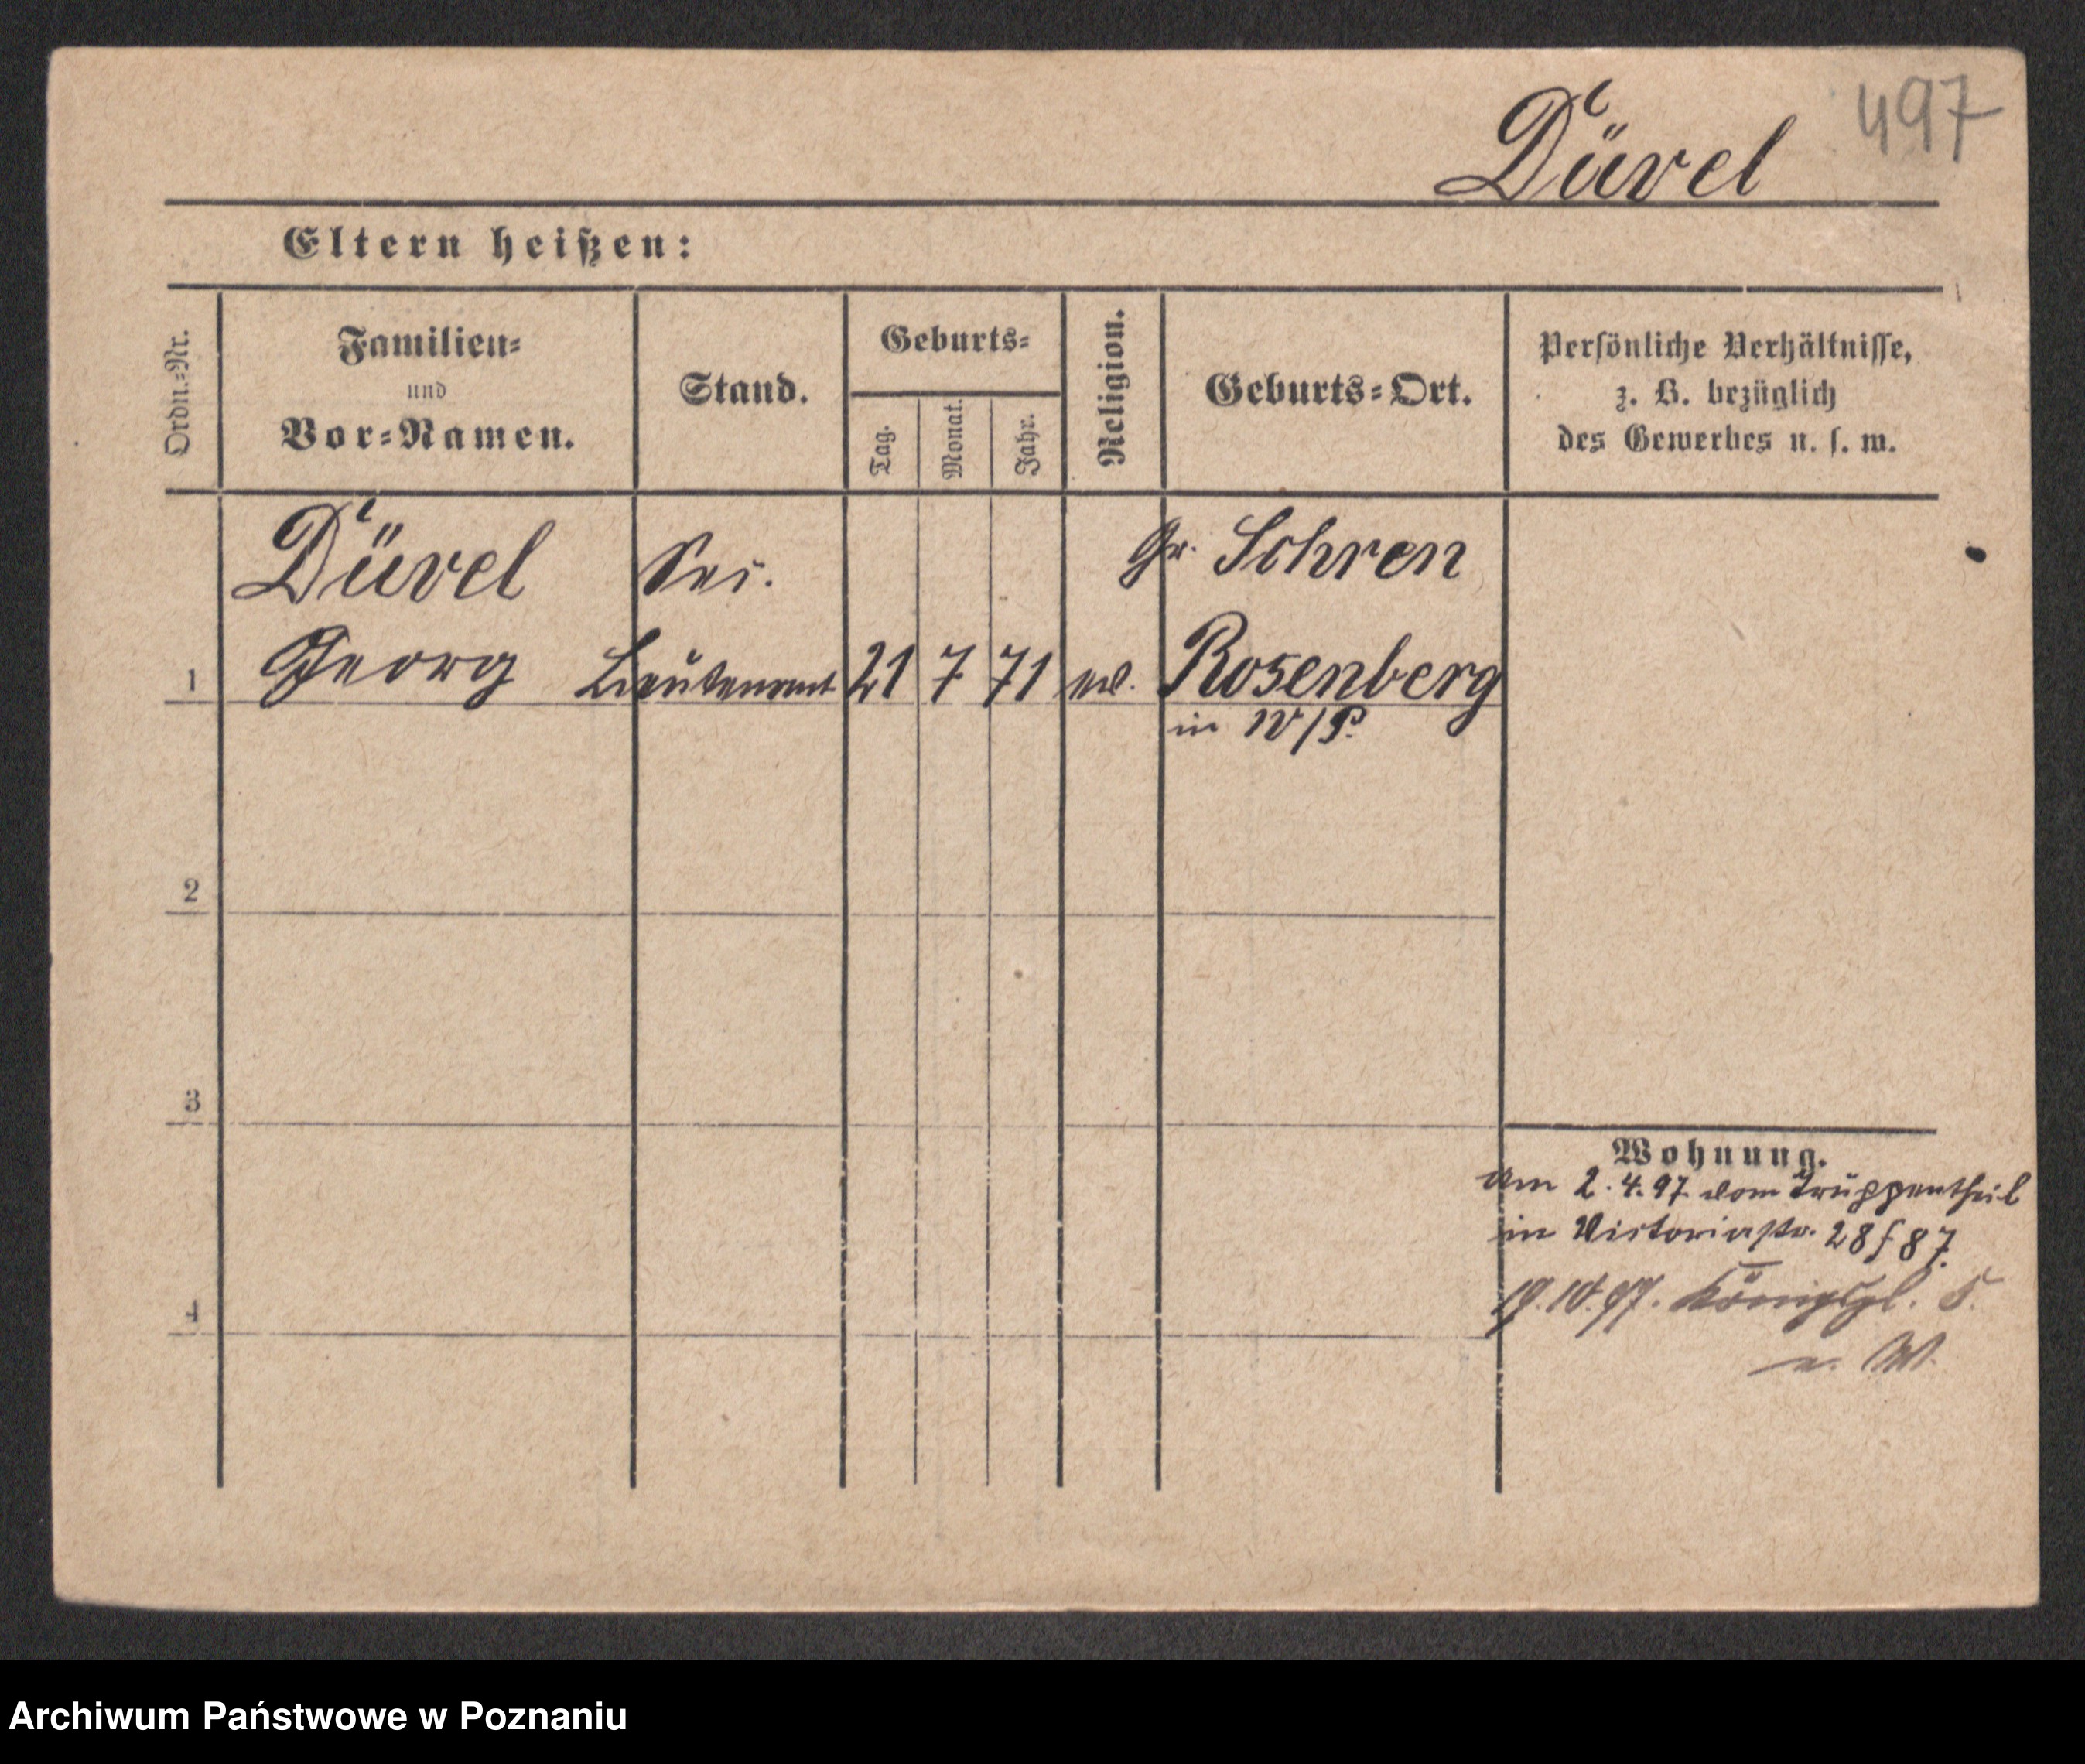 497
Düvel
Eltern heißen:
Ordn.-Nr.
Familien-
und
Vor-Namen.
Stand.
Geburts-
Tag.
Monat.
Jahr.
Religion.
Geburts-Ort.
Persönliche Verhältnisse,
z. B. bezüglich
des Gewerbes u. s. w.
Düvel Gr. Schren
1 Georg Lieutenant 21 7 71 ev. Rosenberg
in W/P.
2
3
4
Wohnung.
Am 2.4.97 vom Truppentheil
in Victoriastr. 28 f 87
19.10.97. Königspl. 5.
n. W.